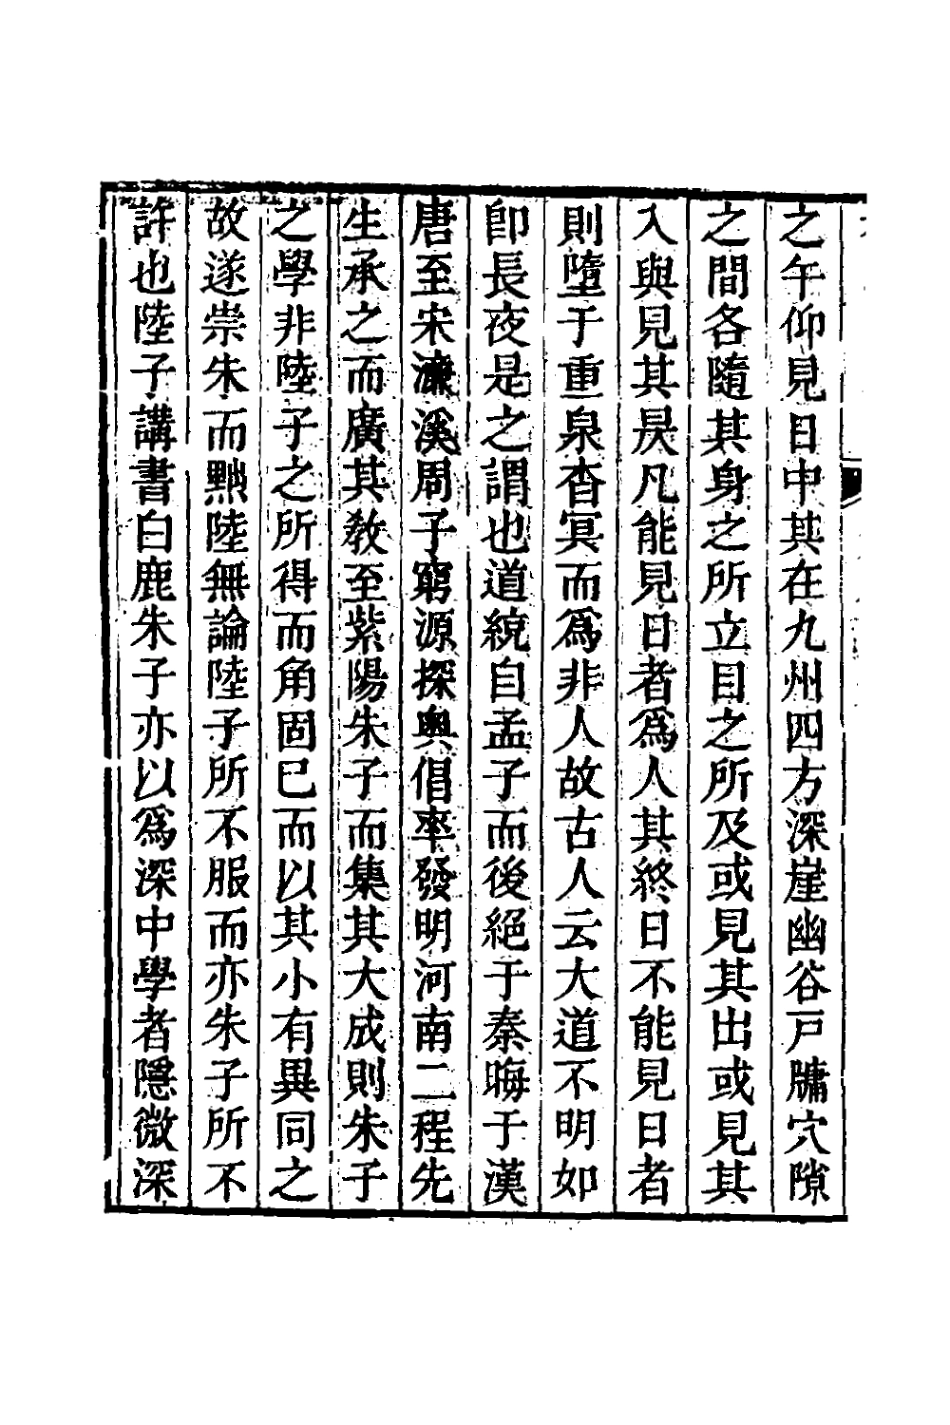 之午仰見日中其在九州四方深崖幽谷戸牗穴隙
之間各隨其身之所立目之所及或見其出或見其
入與見其昃凡能見日者爲人其終日不能見日者
則墮于重泉杳冥而爲非人故古人云大道不明如
卽長夜是之謂也道統自孟子而後絕于秦晦于漢
唐至宋濂溪周子窮源探奧倡率發明河南二程先
生承之而廣其敎至紫陽朱子而集其大成則朱子
之學非陸子之所得而角固已而以其小有異同之
故遂崇朱而黜陸無論陸子所不服而亦朱子所不
許也陸子講書白鹿朱子亦以爲深中學者隱微深